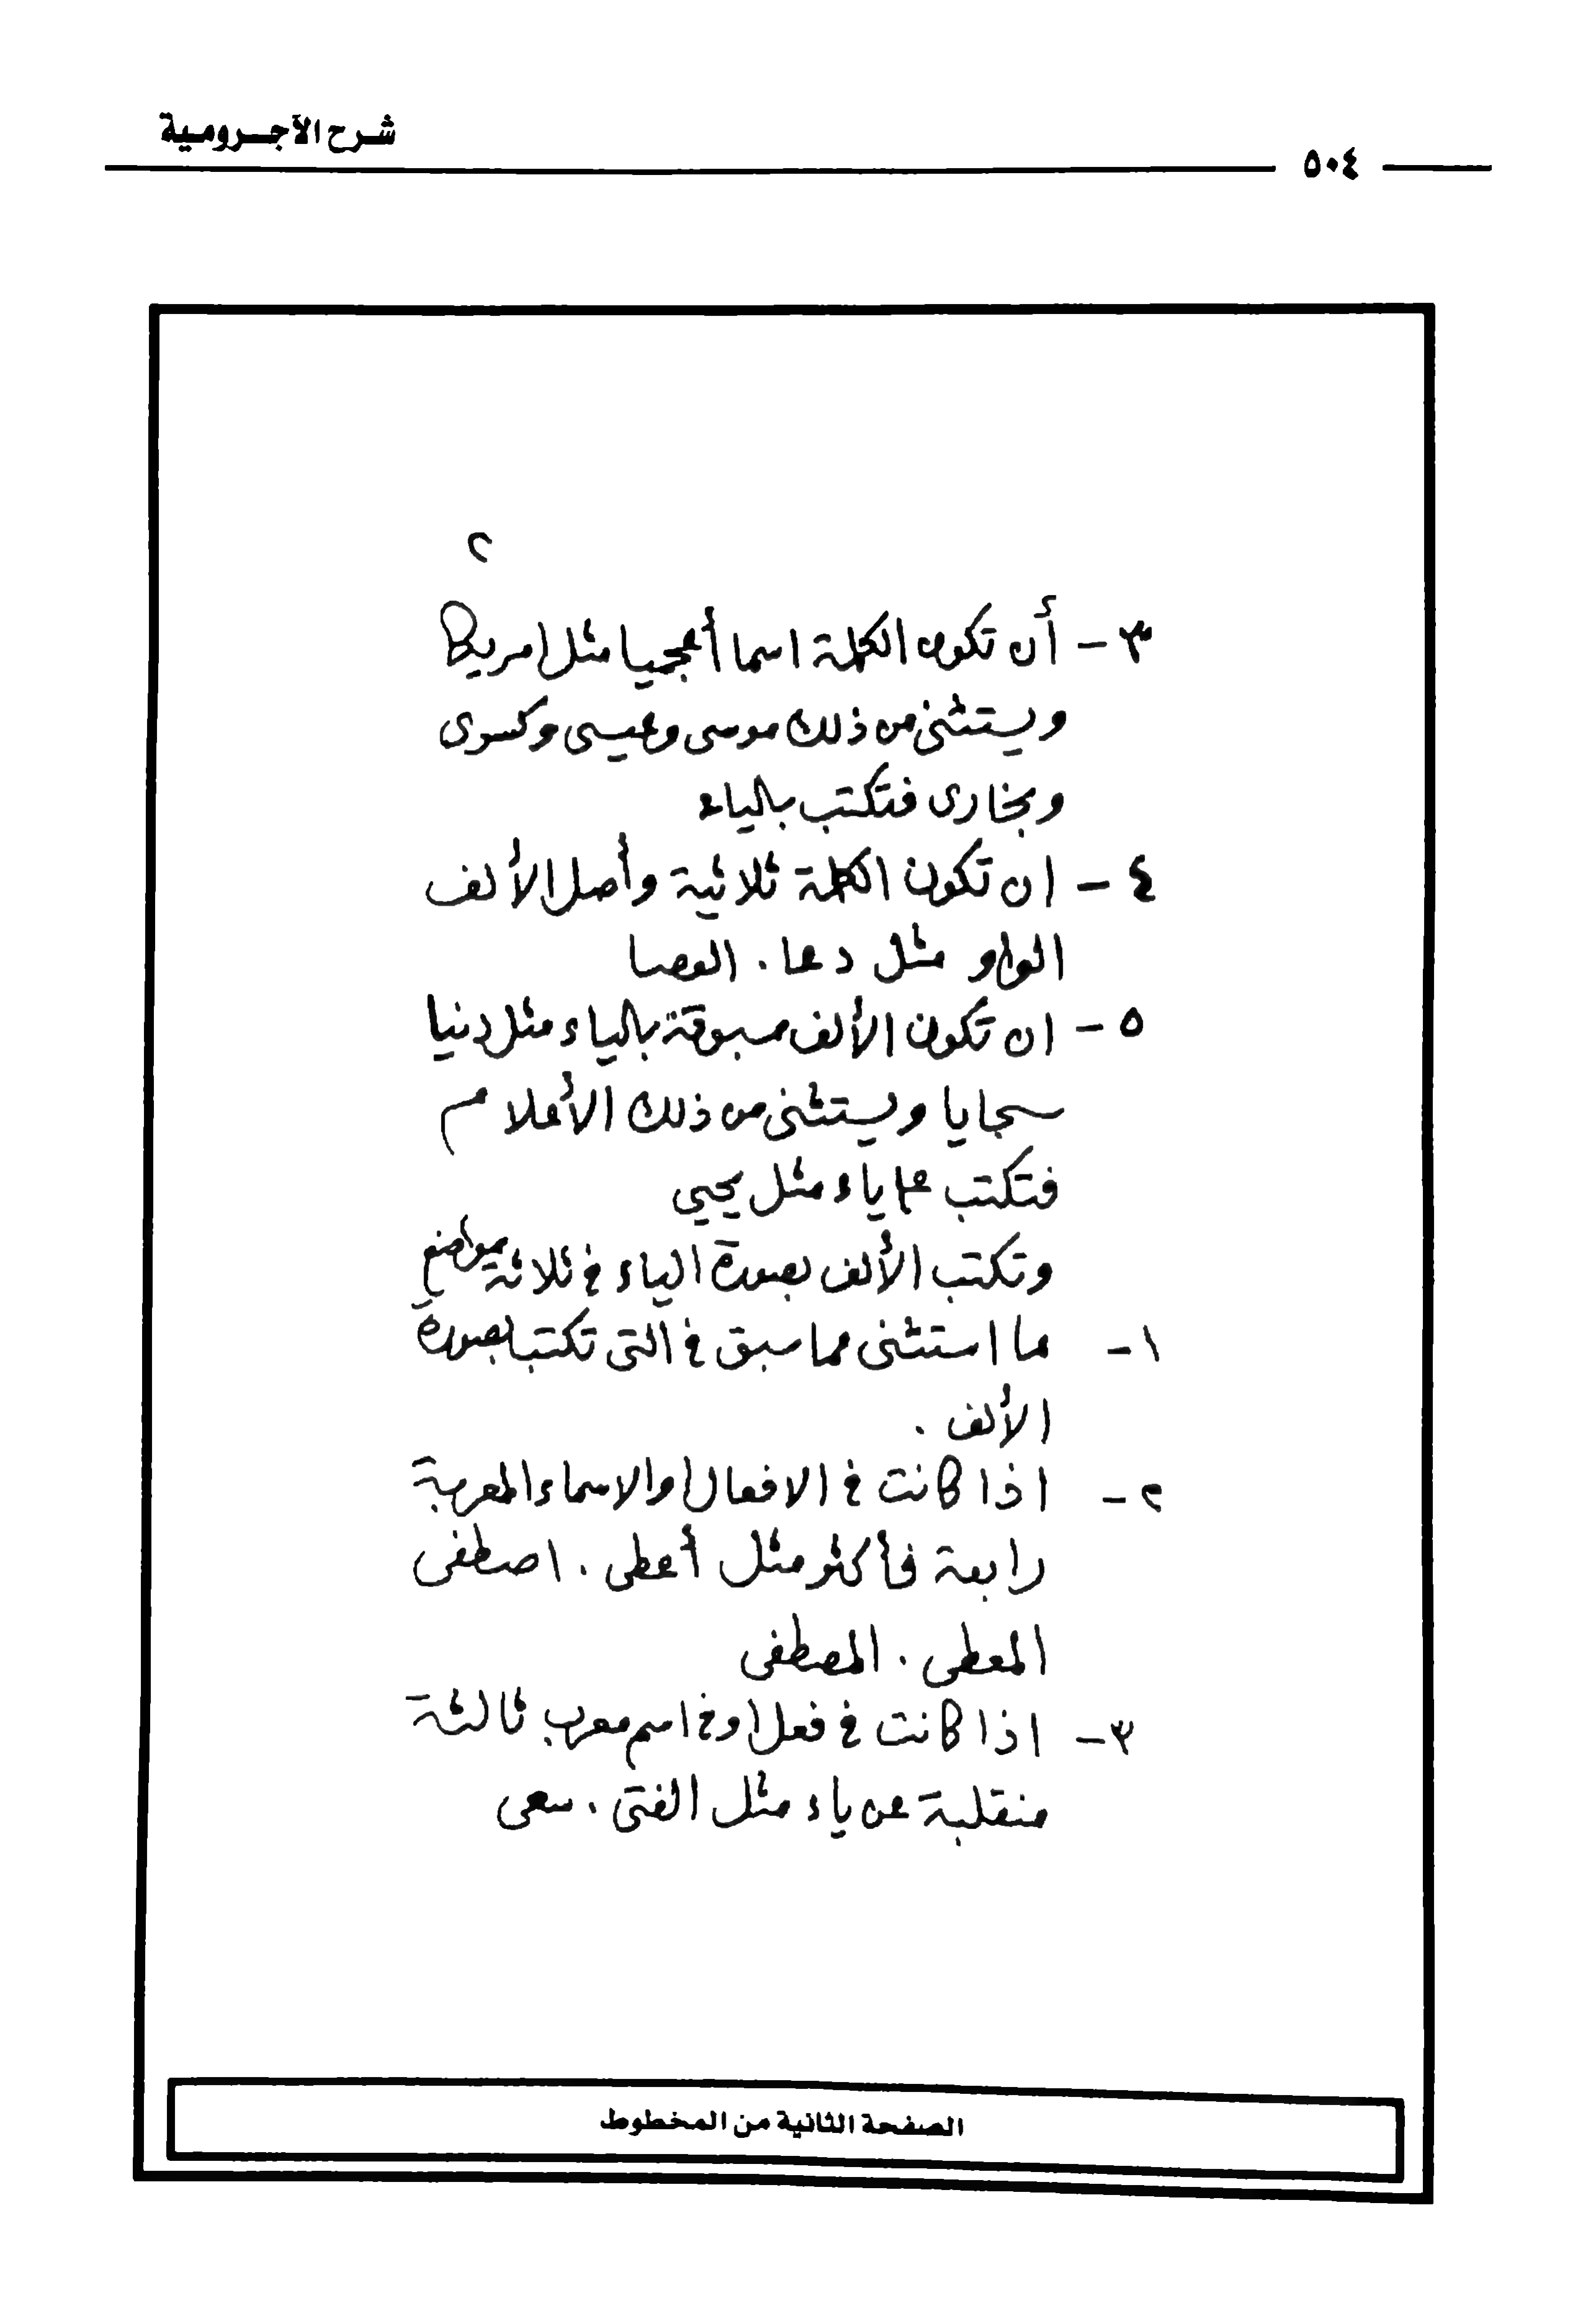 شرح الآجرومية
٥٠٤
٢
٣ - أن تكون الكلمة اسما أعجميا مثل امريكا
ويستثنى من ذلك موسى وعيسى وكسرى
وبخارى فتكتب بالياء
٤ - ان تكون الكلمة ثلاثية وأصل الألف
الواو مثل دعا . العصا
٥ - ان تكون الألف مسبوقة بالياء مثل دنيا
سجايا ويستثنى من ذلك الأعلام
فتكتب ياء مثل يحيى
وتكتب الألف بصورة الياء في ثلاثة مواضع
١ - ما استثنى مما سبق في التى تكتب بصورة
الألف .
٢ - اذا كانت في الافعال والاسماء المعربة
رابعة فأكثر مثل أعطى . اصطفى
المعطى . المصطفى
٣ - اذا كانت في فعل او في اسم معرب ثالثة
منقلبة عن ياء مثل الفتى . سعى
الصفحة الثانية من المخطوط